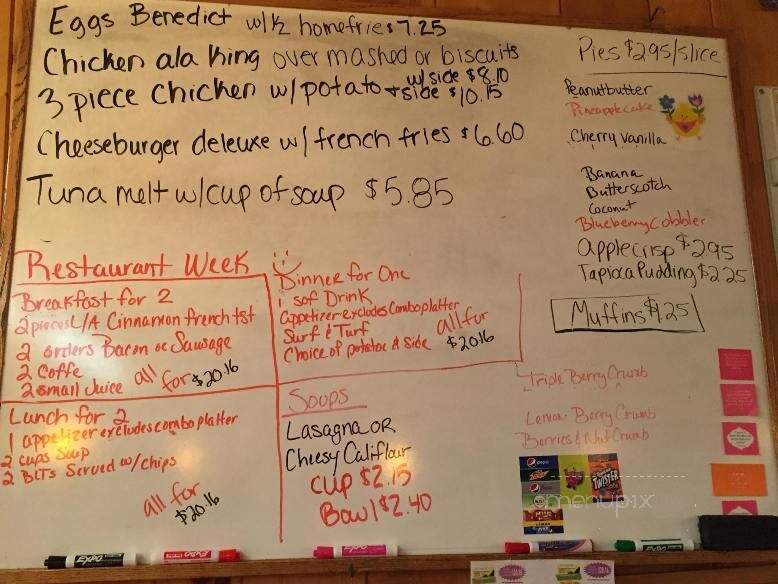 Eggs Benedict w/ 1/2 homefries 7.25
Chicken ala King over mashed or biscuits
w/side $8.10
3 piece Chicken w/potato + side $10.15
Cheeseburger deleuxe w/ french fries $6.60
Tuna melt w/cup of soup $5.85
Pies $2.95/slice
Peanutbutter
Pineapplecake
Cherry vanilla
Banana
Butterscotch
Coconut
Blueberry Cobbler
Applecrisp $2.95
Tapioca Pudding $2.25
Muffins $1.25
Triple Berry Crumb
Lemon Berry Crumb
Berries & Nut Crumb
Restaurant Week
Breakfast for 2
2 pieces L/A Cinnamon french tst
2 orders Bacon or Sausage
2 Coffe
2 small Juice all for $20.16
Dinner for One
1 sof Drink
appetizer excludes Comboplatter
Surf & Turf
Choice of potatoe & Side
all fur
$20.16
Lunch for 2
1 appetizer excludes combo platter
2 cups Soup
2 BLTs Served w/chips
all for
$20.16
Soups
Lasagna OR
Cheesy Califlour
Cup $2.15
Bowl $2.40
pepsi
TWISTER
menupix
EXPO
EXPO
EXPO